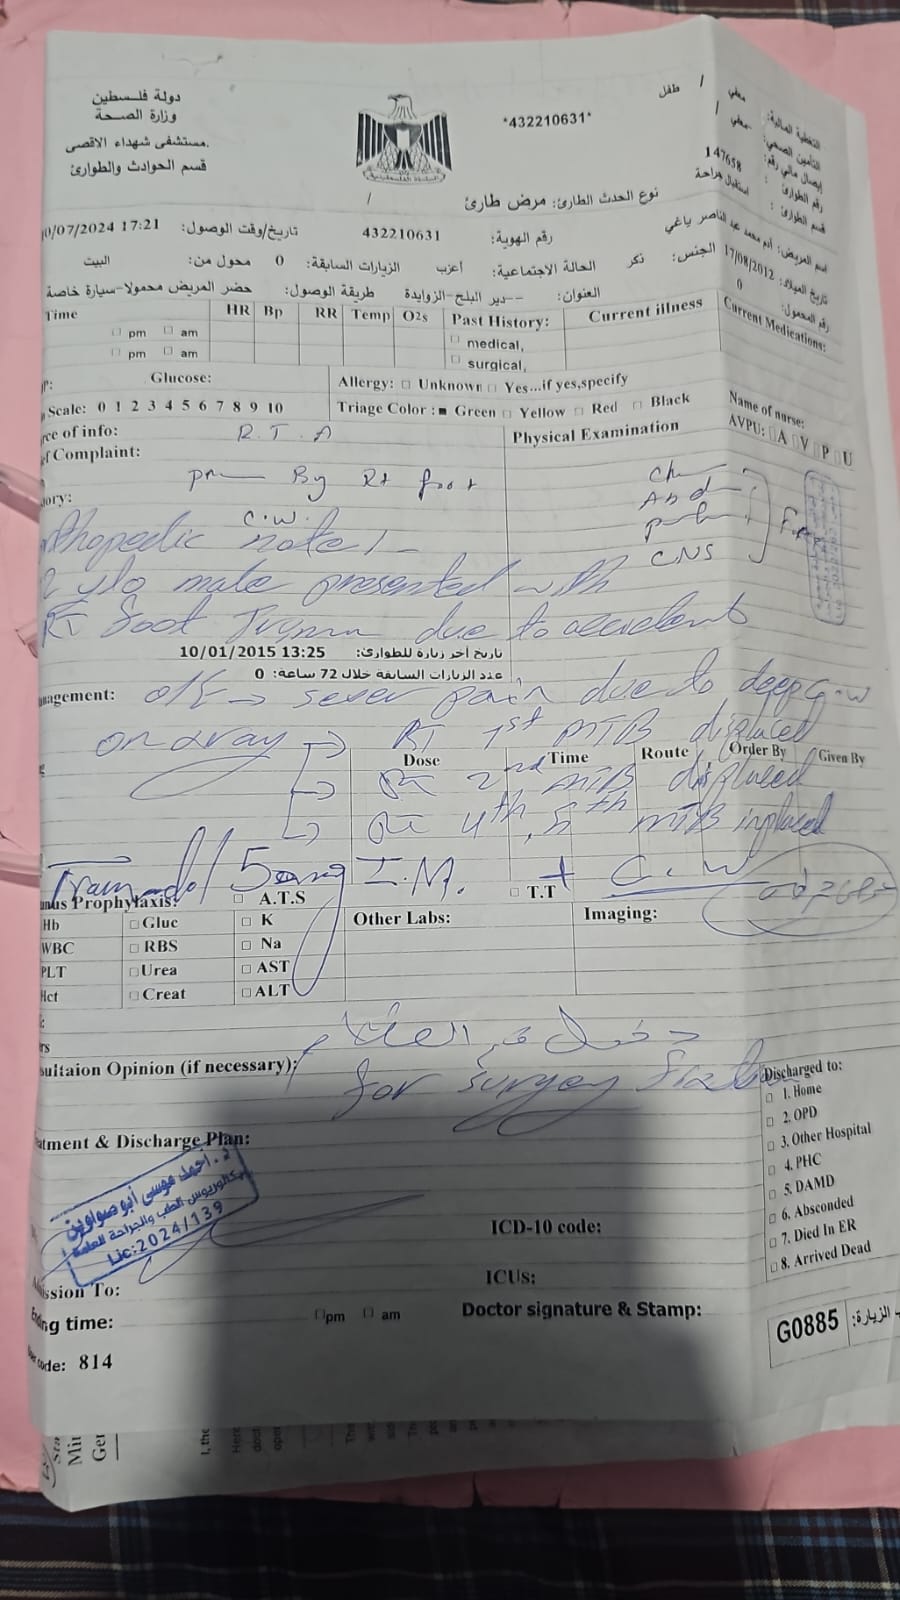 دولة فلسطين
وزارة الصحة
مستشفى شهداء الاقصى.
قسم الحوادث والطوارئ
*432210631*
طفل /
التغطية المالية: معفي
التأمين الصحي: معفي /
إيصال مالي رقم:
رقم الطوارئ : 147658
قسم الطوارئ : استقبال جراحة
/
نوع الحدث الطارئ: مرض طارئ
اسم المريض: آدم محمد عبد الناصر ياغي
رقم الهوية: 432210631
تاريخ/وقت الوصول: 0/07/2024 17:21
تاريخ الميلاد: 17/08/2012
الجنس: ذكر
الحالة الاجتماعية: أعزب
الزيارات السابقة: 0
محول من: البيت
رقم المحمول: 0
العنوان: --دير البلح-الزوايدة
طريقة الوصول: حضر المريض محمولا-سيارة خاصة
Time HR Bp RR Temp O2s Past History: Current illness Current Medications:
pm am medical,
pm am surgical,
Glucose: Allergy: Unknown Yes...if yes,specify
Scale: 0 1 2 3 4 5 6 7 8 9 10 Triage Color : Green Yellow Red Black
Name of nurse:
AVPU: A V P U
ce of info: R.T.A Physical Examination
Complaint:
By Rt foot
ory: C.W.
Abd
CNS
thopedic note
2 y/o male presented with
RT foot due to accident
تاريخ آخر زيارة للطوارئ: 10/01/2015 13:25
عدد الزيارات السابقة خلال 72 ساعة: 0
nagement: O/E → sever pain due to deep C.W
on xray → RT 1st MTB displaced
Dose Time Route Order By Given By
→ RT 2nd MTB displaced
→ RT 4th, 5th MTB inplaced
Tramadol 50mg I.M. + C.W
nus Prophylaxis: A.T.S T.T
Hb Gluc K Other Labs: Imaging:
WBC RBS Na
PLT Urea AST
Hct Creat ALT
rs
دخول قسم العظام
sultaion Opinion (if necessary):
for surgey
atment & Discharge Plan:
Discharged to:
1. Home
2. OPD
3. Other Hospital
4. PHC
5. DAMD
6. Absconded
7. Died In ER
8. Arrived Dead
د. أحمد موسى أبو صواوين
بكالوريوس الطب والجراحة العامة
Lic:2024/139
ICD-10 code:
ission To: ICUs:
ng time: pm am Doctor signature & Stamp:
code: 814
G0885 الزيارة: